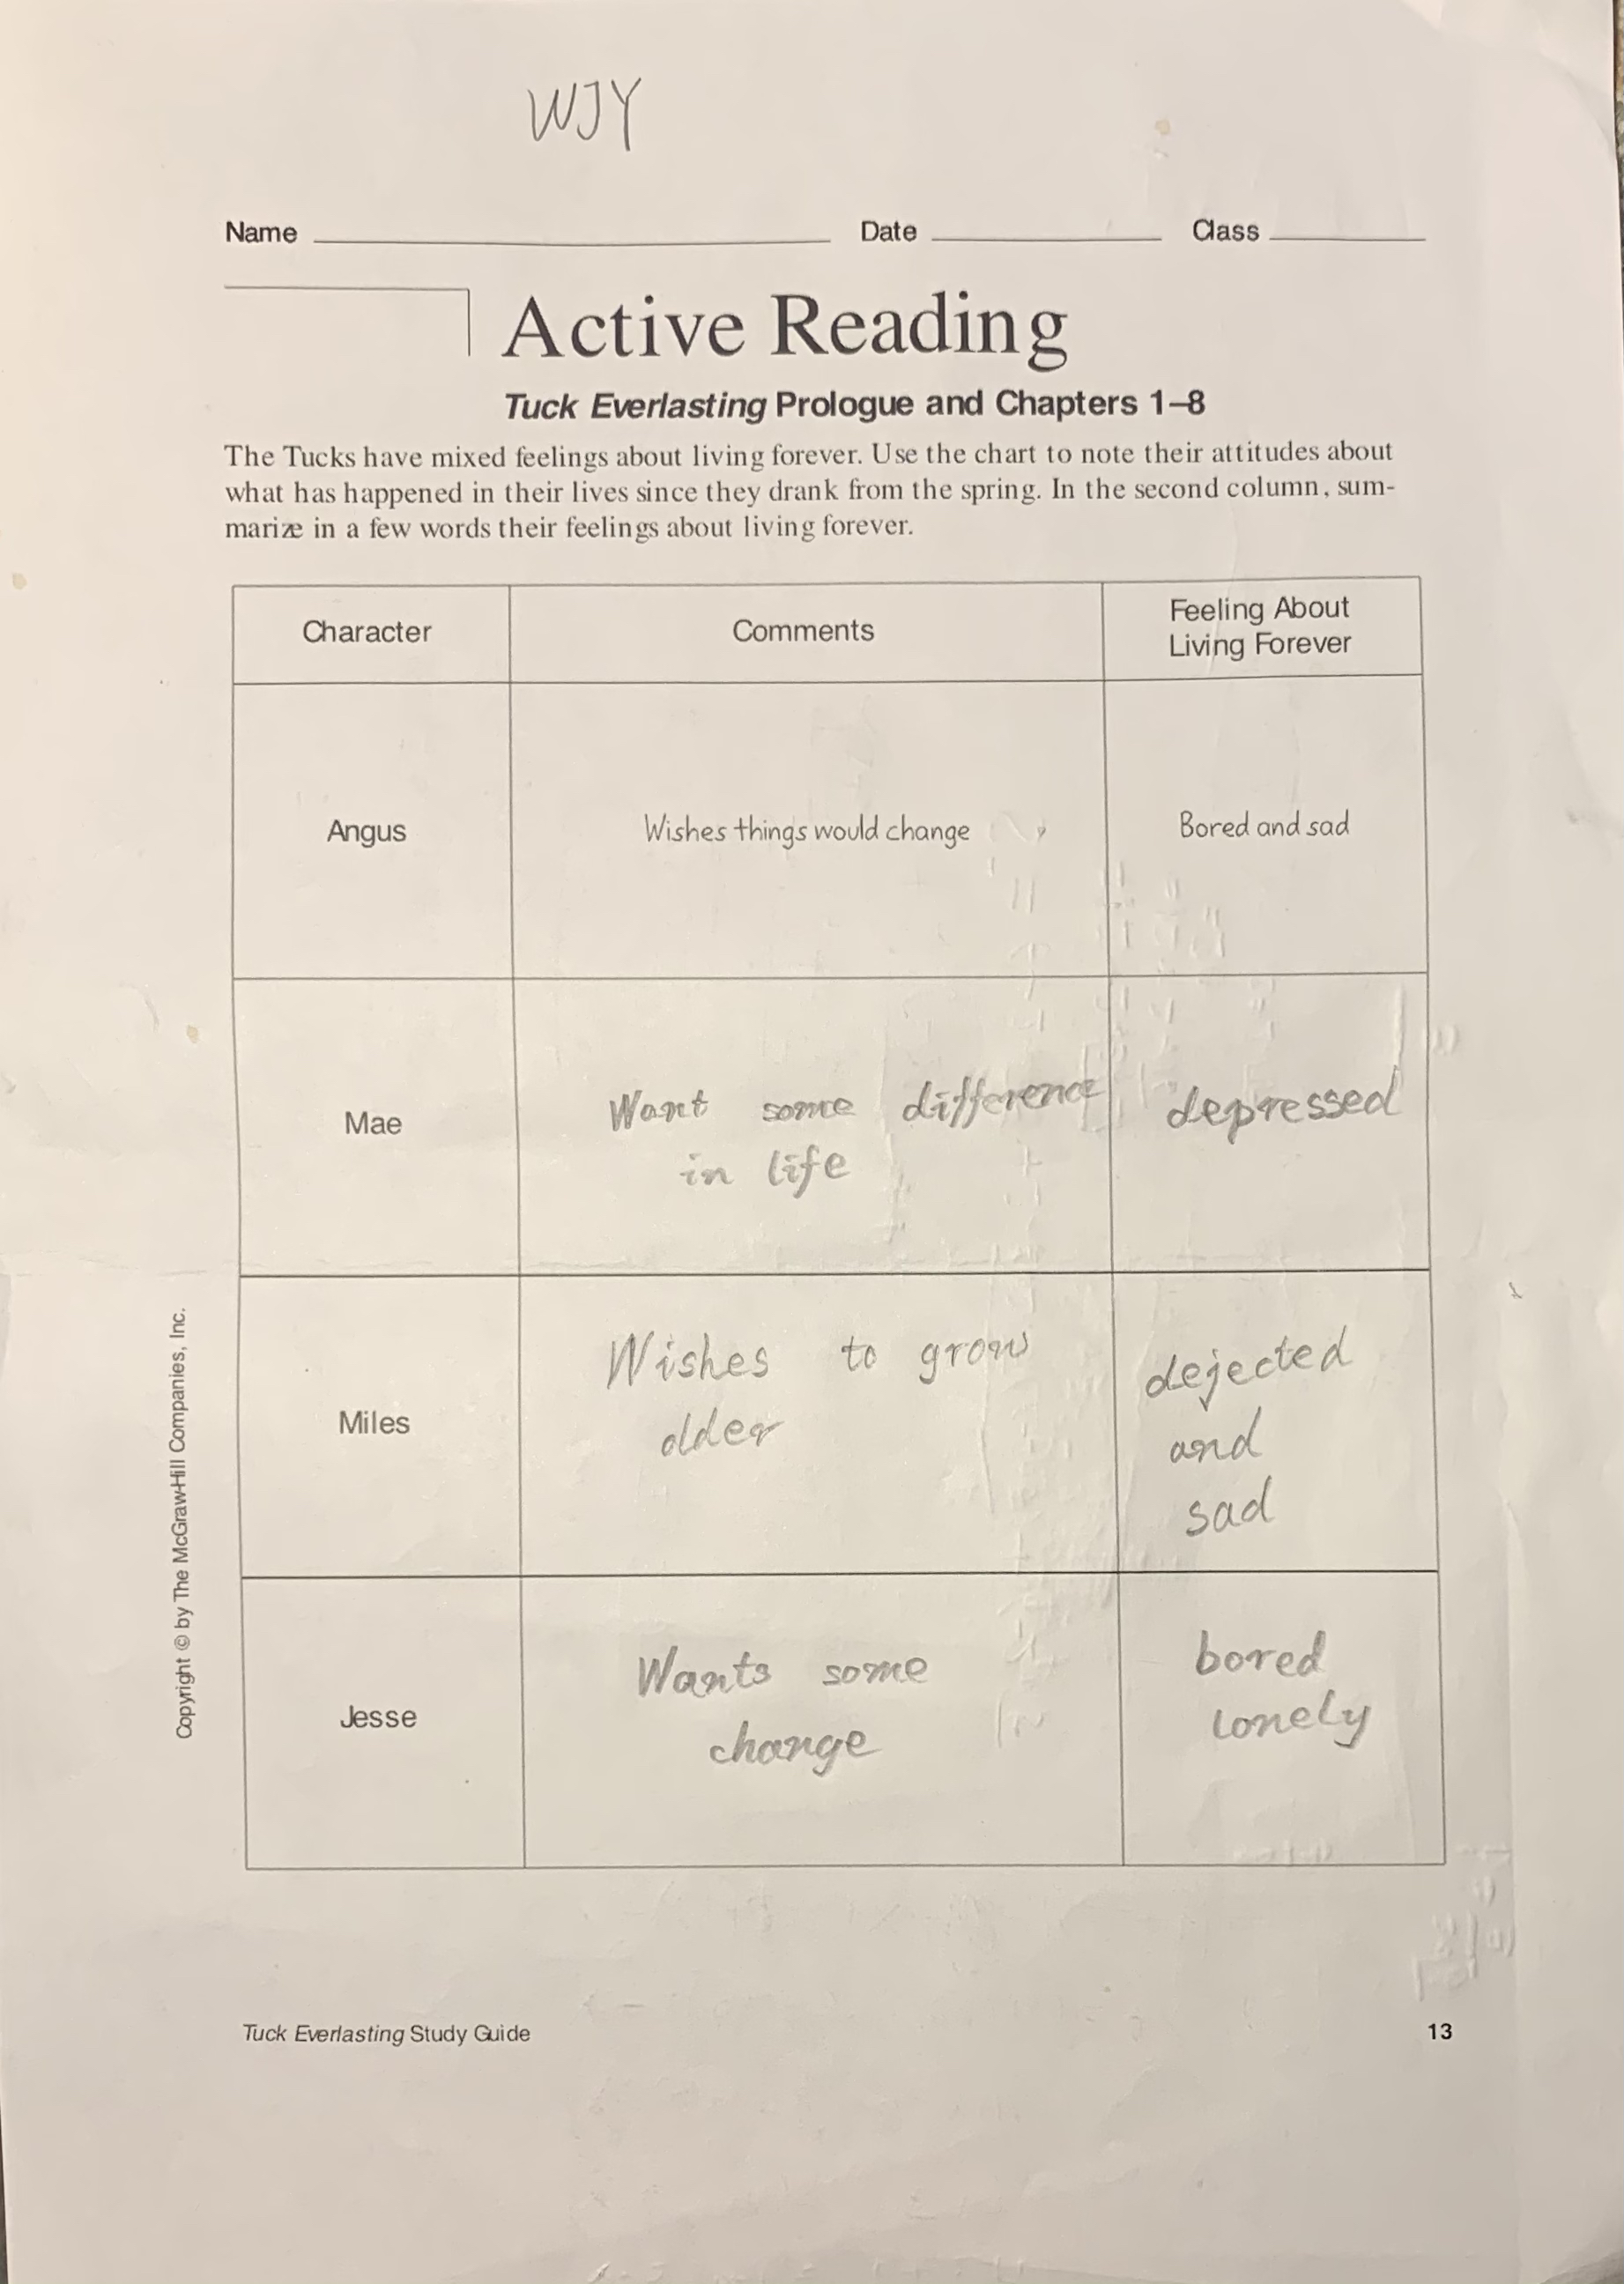 WJY
Name Date Class
Active Reading
Tuck Everlasting Prologue and Chapters 1–8
The Tucks have mixed feelings about living forever. Use the chart to note their attitudes about
what has happened in their lives since they drank from the spring. In the second column, sum-
marize in a few words their feelings about living forever.
Character
Comments
Feeling About
Living Forever
Angus
Wishes things would change
Bored and sad
Mae
Want some difference
in life
depressed
Miles
Wishes to grow
older
dejected
and
sad
Jesse
Wants some
change
bored
lonely
Copyright © by The McGraw-Hill Companies, Inc.
Tuck Everlasting Study Guide
13